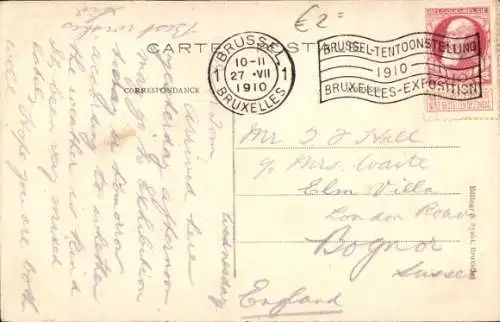 €2=
CARTE POSTALE
CORRESPONDANCE
BRUSSEL
1 10-11 1
27 · VII
1910
BRUXELLES
BRUSSEL-TENTOONSTELLING
1910
BRUXELLES-EXPOSITION
Mr T J Hall
c/o Mrs. Waite
Elm Villa
London Road
Bognor
Sussex
England
Wednesday
Tom! arrived here
yesterday afternoon
& going to Exhibition
today or tomorrow
according to whether
the weather is kind
It's been very mixed
Hope you are both
well
Best wishes